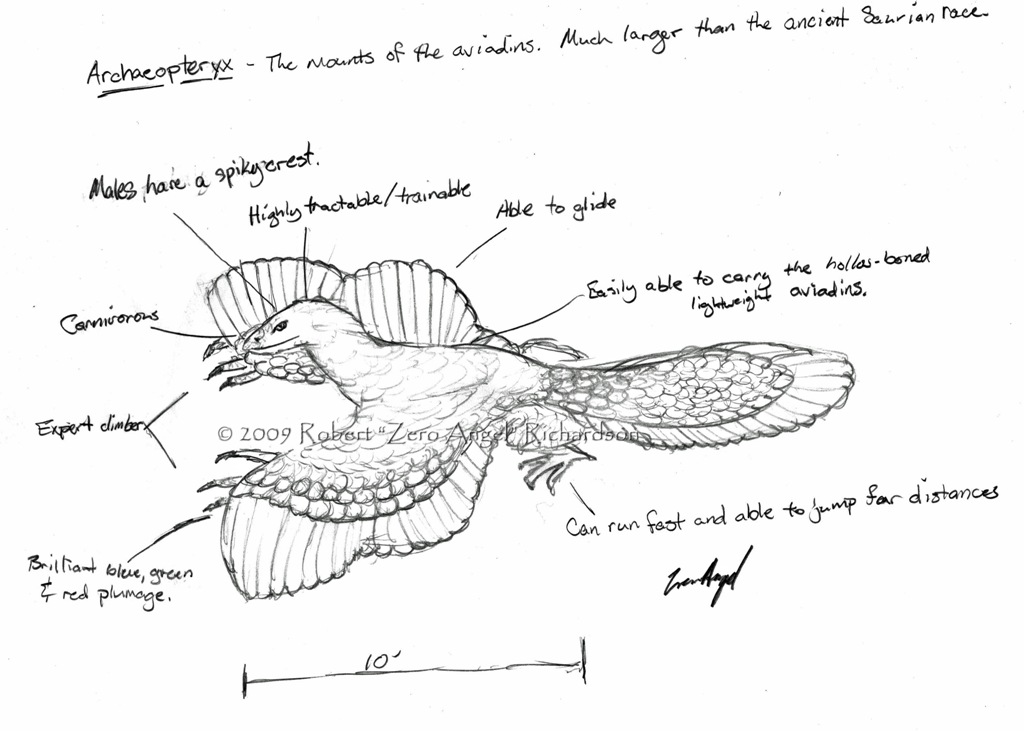 Archaeopteryx - The mounts of the aviadins. Much larger than the ancient Saurian race.
Males have a spiky crest.
Highly tractable/trainable
Able to glide
Easily able to carry the hollow-boned
lightweight aviadins.
Carnivorous
Expert climber
© 2009 Robert "Zero Angel" Richardson
Can run fast and able to jump far distances
Brilliant blue, green
& red plumage.
ZeroAngel
10'